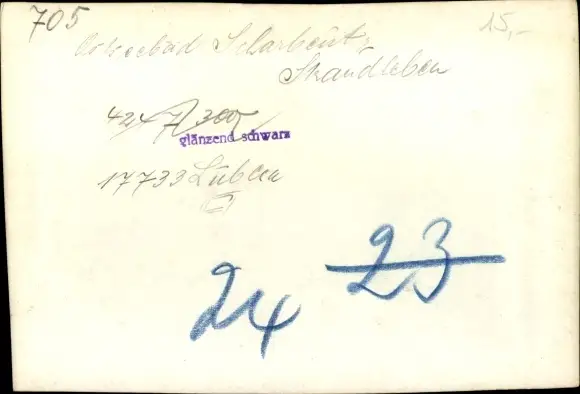 705
15,-
Ostseebad Scharbeutz
Strandleben
424 / 300
glänzend schwarz
17733 Lübeck
24
23